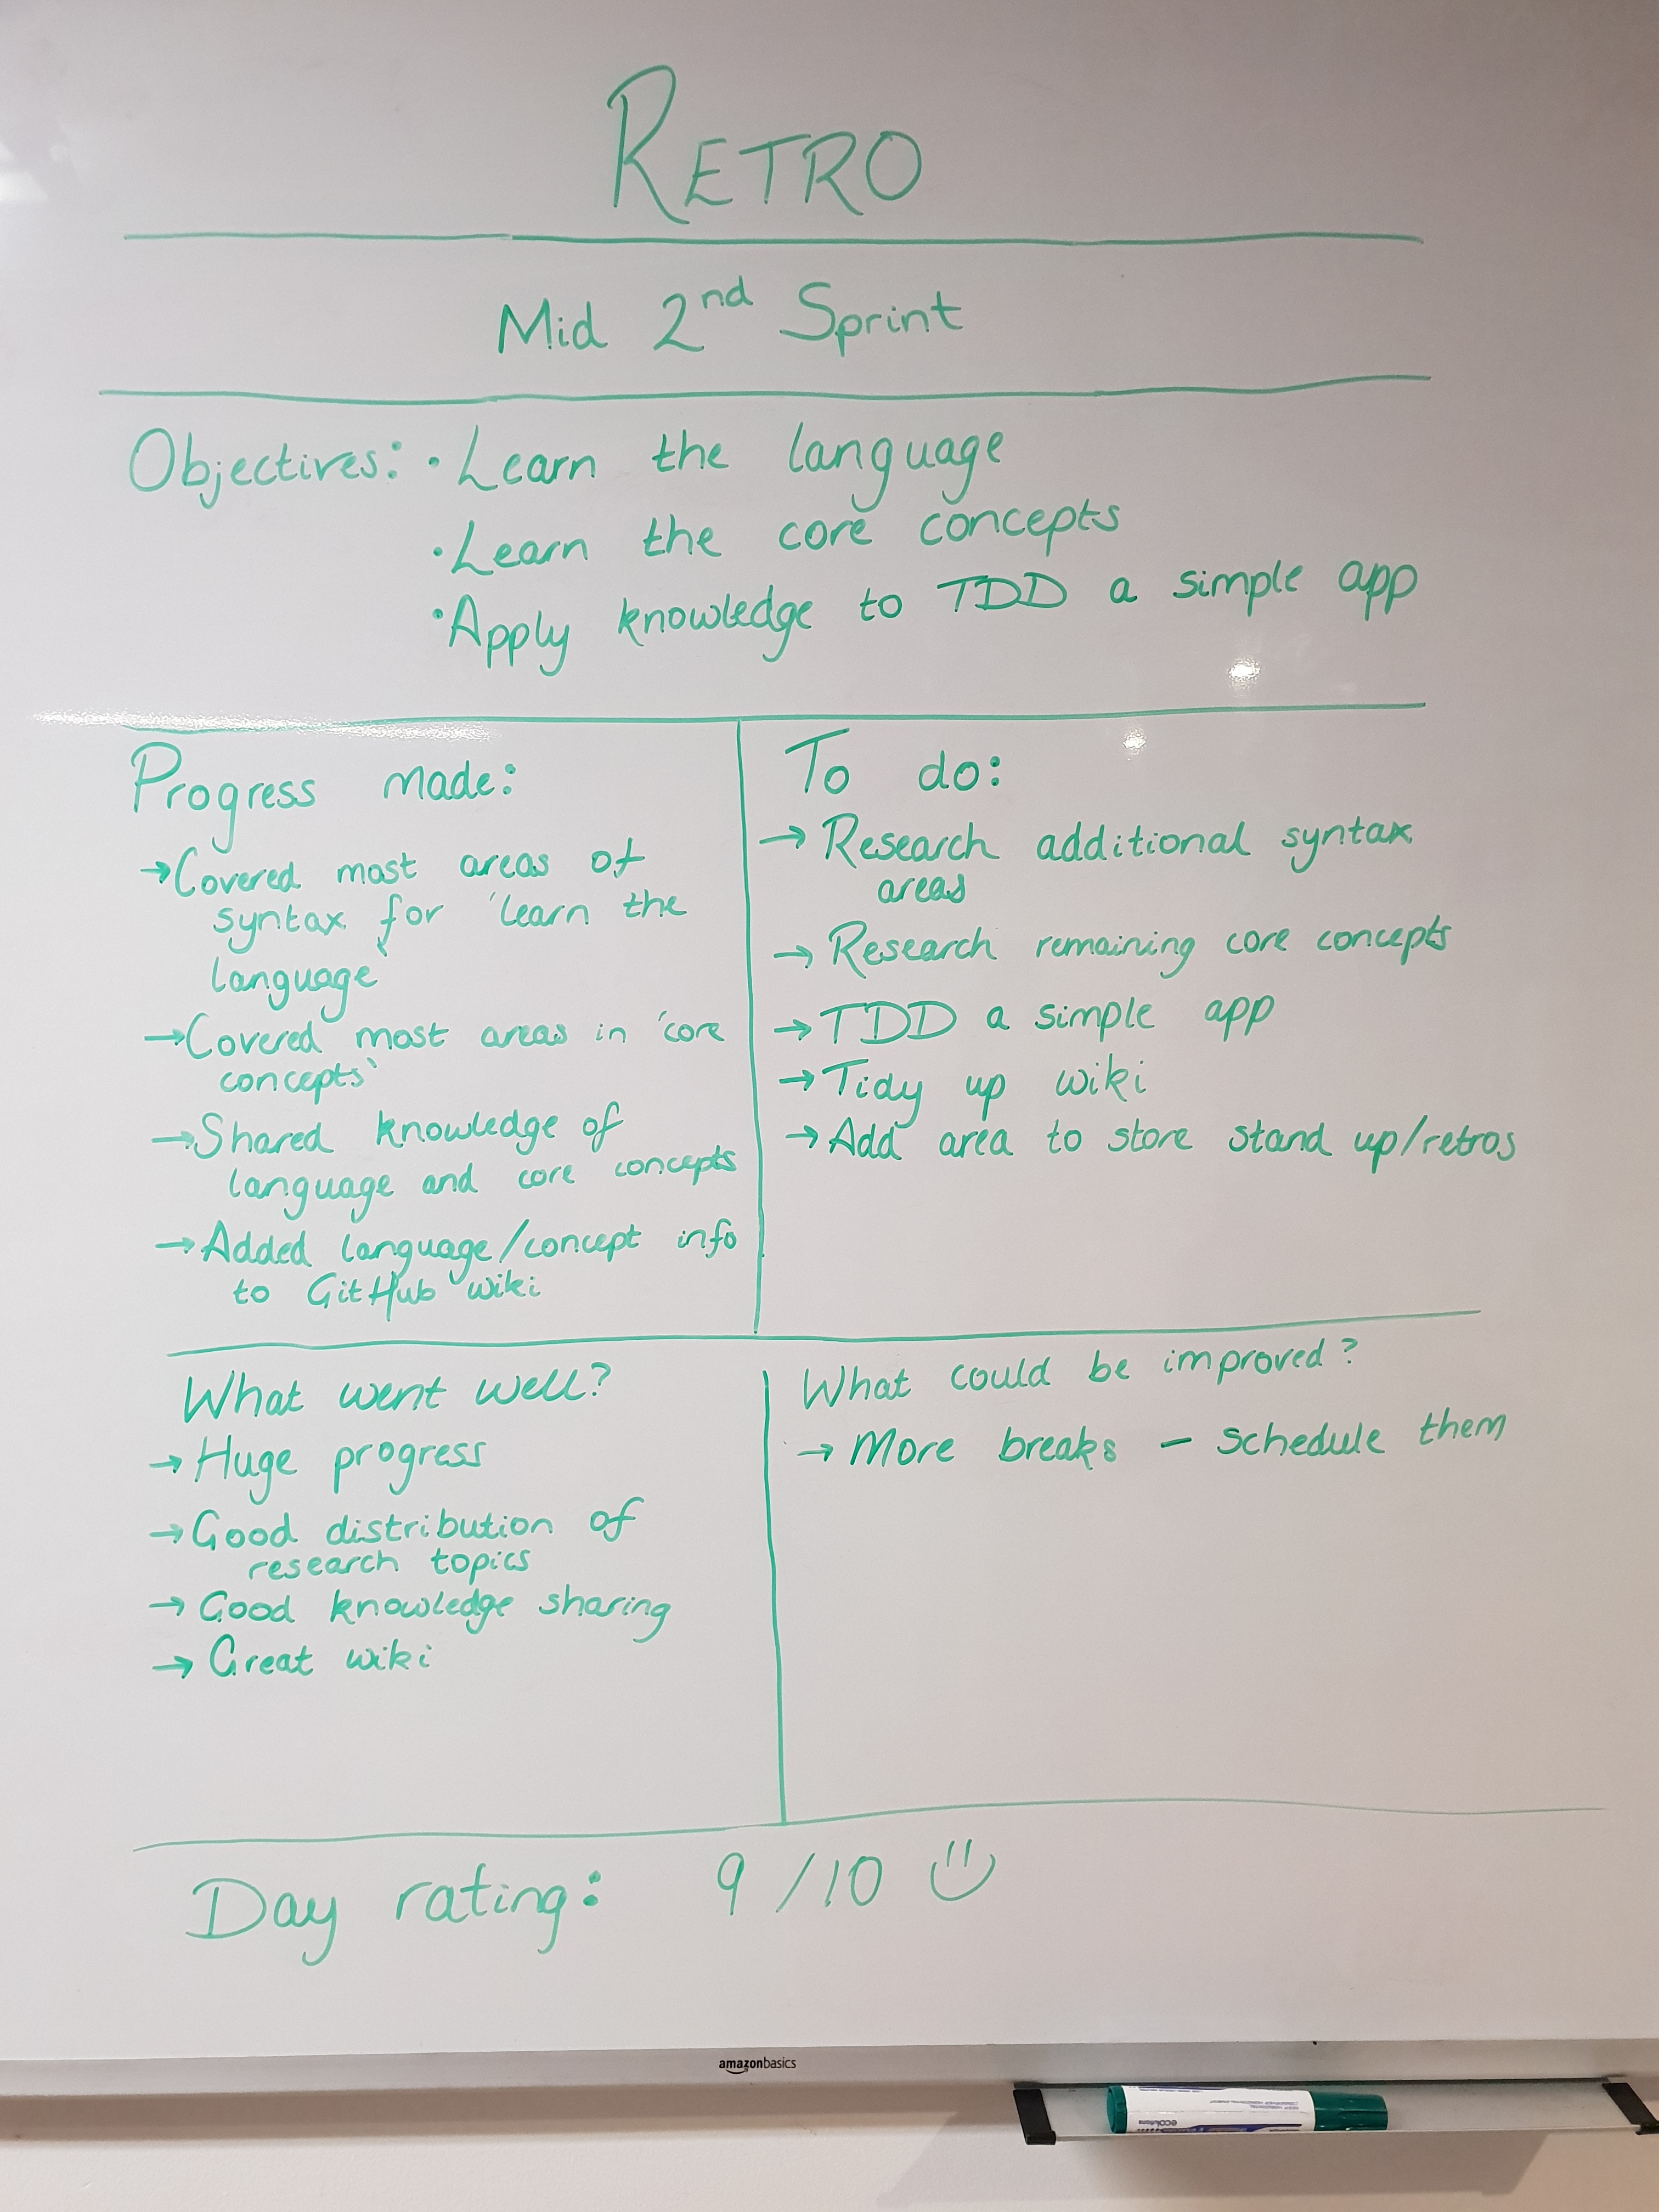 RETRO
Mid 2nd Sprint
Objectives: • Learn the language
• Learn the core concepts
• Apply knowledge to TDD a simple app
Progress made:
→ Covered most areas of
syntax for 'learn the
language'
→ Covered most areas in 'core
concepts'
→ Shared knowledge of
language and core concepts
→ Added language/concept info
to GitHub wiki
To do:
→ Research additional syntax
areas
→ Research remaining core concepts
→ TDD a simple app
→ Tidy up wiki
→ Add area to store stand up/retros
What went well?
→ Huge progress
→ Good distribution of
research topics
→ Good knowledge sharing
→ Great wiki
What could be improved?
→ More breaks – schedule them
Day rating: 9/10
amazonbasics
ecolutions